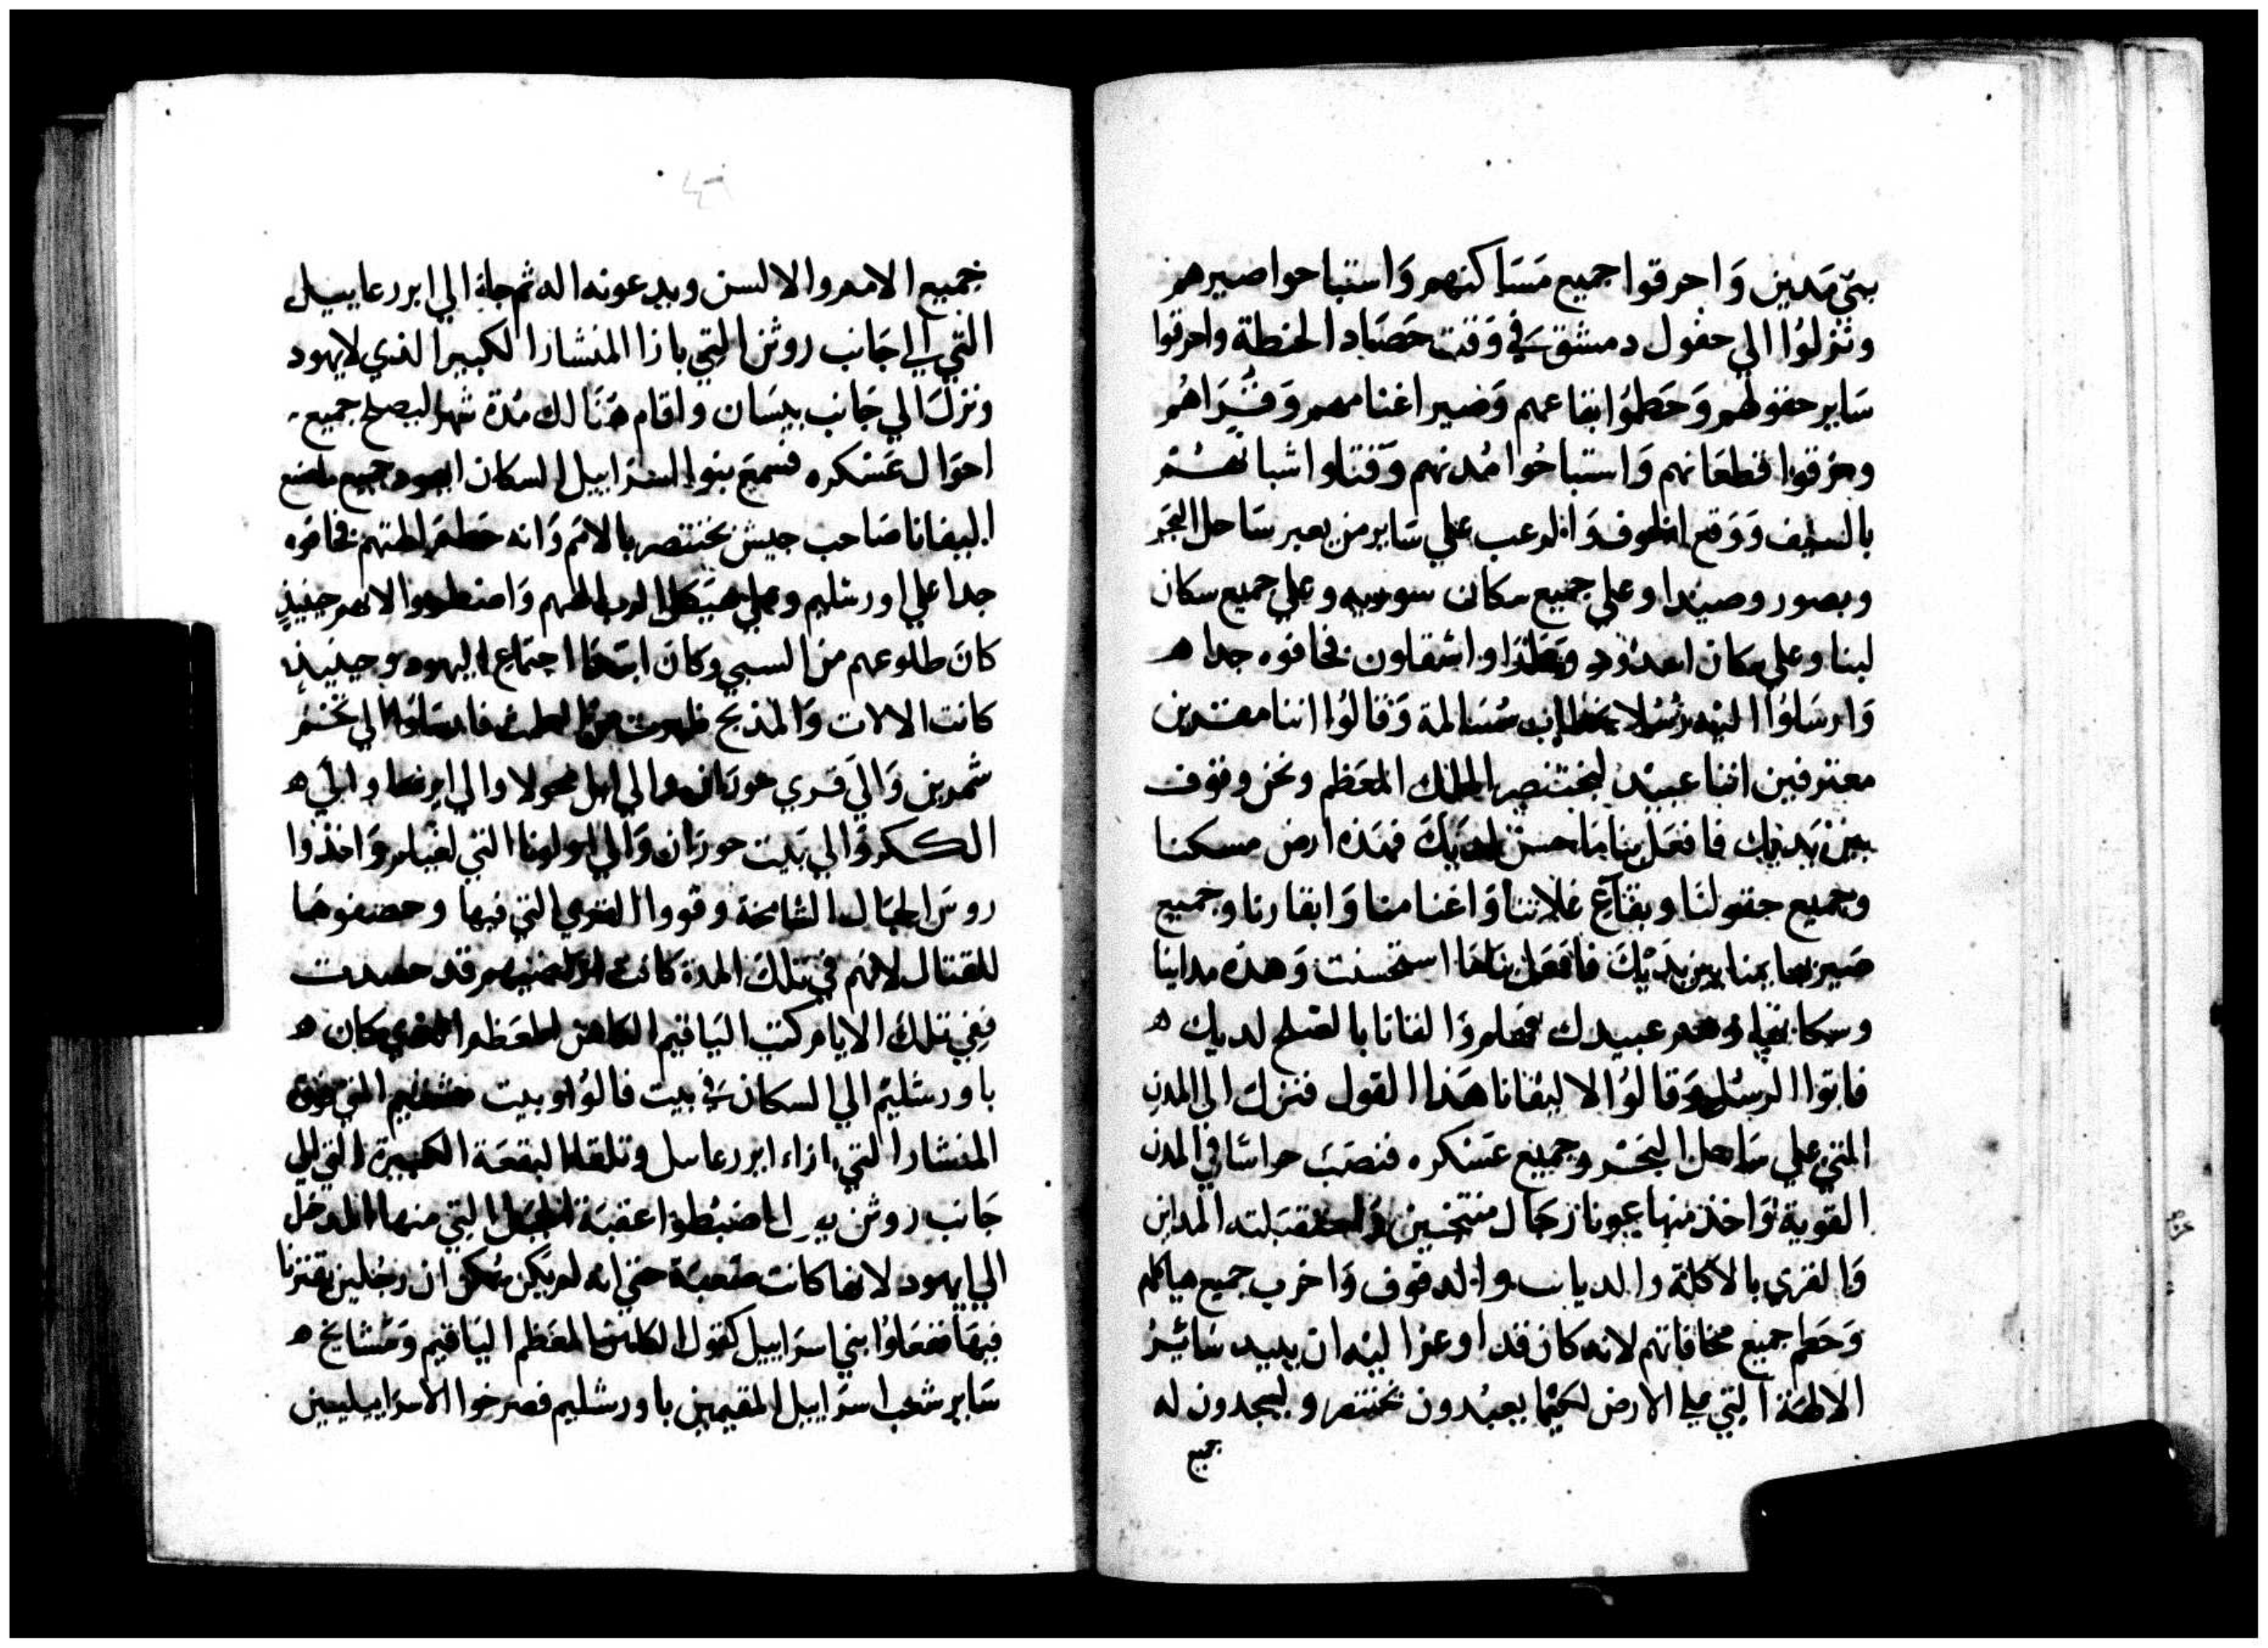 بني مَدين وَاحرقوا جميع مَسَاكنهم وَاستباحوا صيرهم
ونزلوُا الي حقول دمشق في وَقت حَصَاد الحنطة واحرقوا
سَاير حقولهم وَحَطموُا بقاعهم وَضير اغنامهم وَقرَاهُم
ومزقوا قطعَانهم وَاستباحُوا مُدنهم وَقتلوا شبانهُم
بالسَيف وَوَقع الخوف وَالرعب علي سَاير من بعبر سَاحل البَحر
وبصور وصيَدا وعلي جميع سكان سوريه وعلي جميع سكان
لبنا وعلي سكان اعدُود واشقلون فخافوه جدا ه
وَارسَلوُا اليه رسُلا بخطاب مُسَالمة وَقالوُا اننا
معترفين اننا عبيد لبختنصر الملك المعَظم ونحن وقوف
بين يَديك فافعَل بنا مَا حسن لديَك فهَذه ارض مسكننا
وجميع حقولنَا وبقاَع غلاتنا وَاغنامنا وَابقارنا وجميع
بين يدَيْكَ فافعَل بنا استحسنت وَهذه مداينا
وسكانها وهم عبيدك فهلم وَالقانا بالصُلح لديك ه
فاتوا الرسُل وَقالوُا لاليفانا هَذا القول فنزل الي المدن
التي علي سَاحل البَحر وجميع عَسكره فنصَبَ حراسًا في المدن
القوية وَاخذ منها عَونا رجَال منتخبين المداين
وَالقري بالاكلة والديابـ والدفوف وَاخرب جميع هياكلهم
وَحَطم جميع مخافاتهم لانه كان قد اوعزا ليه ان يبيد سَائير
الالهَة التي علي الارض لكيْما يعبُدون بختنصر ويسجدون له
جميع
جميع الامم والالسن ويدعونه اله ثم جاء الي ابررعاييل
التي الي جَانب روثن التي بازا المنشار الكبير الذي لايهود
ونزل الي جَانب بيسَان واقام هنَالك مُدة شهر ليصلح جميع
احوَال عَسْكره فسمعَ بنوا اسرَاييل السكان ايهود جميع ماصنع
اليفانا صَاحب جيش بختنصر بالامم وَانه حَطم الهتهم فخافوَه
جدا علي اورشليم وعلي هيَكل الرب الههم حينيذٍ
كانَ طلوعهم من السبي وكان اجتمَاع اليهود وحينيذ
كانت الالات وَالمذبح ظهرت فارسَلوا الي تخم
شمرين وَالي قري حورَان والي
وَالي بَيت حورَان وَالي التي وَاخذوا
روسَ الجبَال الشامخة وقووا القري التي فيها وحصنوهَا
للقتال لانهم في تلكَ المدة كانت قد حصدت
ففي تلك الايامر كتب اليَاقيم الكاهن المعَظم الذي كان ه
باورشليمُ الي السكان في بيت فالوُا وبيت
المنشار التي ازاء ابررعاسل وتلقاء البقعَة الكبيرة التي الي
جَانب روثن اضبُطوا عقبَة الجبَل التي منها المدخل
الي ايهود لانها كانت صَعبَة حتي انه لم يَكن يمكن ان رجُلين يقترنا
فيهَا ففعَلوُا بني اسرَاييل كقول الكاهن المعَظم اليَاقيم وَمشايخ ه
سَاير شعب اسرَاييل المقيمين باورشليم فصرخوا الاسرَاييليين